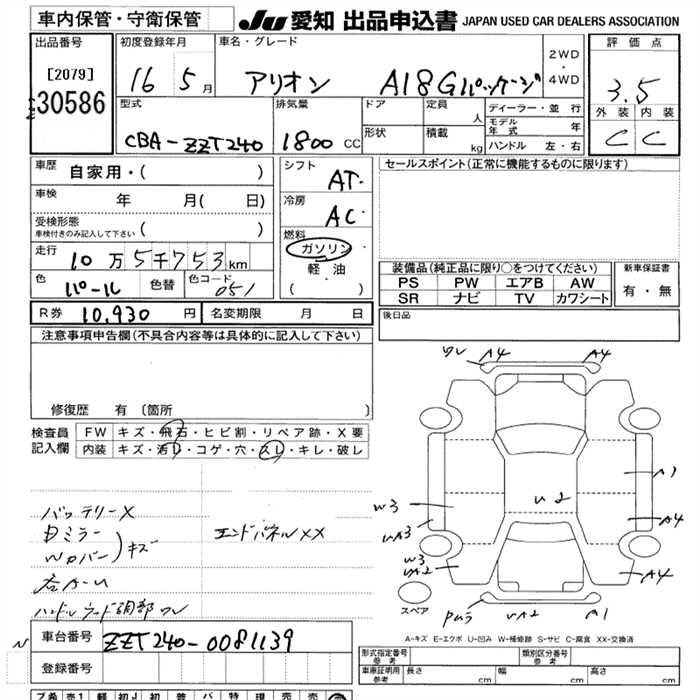 車内保管・守衛保管
JU 愛知 出品申込書 JAPAN USED CAR DEALERS ASSOCIATION
出品番号
[2079]
30586
初度登録年月
16 5月
車名・グレード
アリオン A18Gパッケージ
2WD
・
4WD
評価点
3.5
外装 内装
C C
型式
CBA-ZZT240
排気量
1800 CC
ドア
形状
定員 人
積載 kg
ディーラー・並行
モデル年式 年
ハンドル 左・右
車歴 自家用・( )
車検 年 月( 日)
受検形態
車検付きのみ記入して下さい ( )
走行 10万5千753km
色 パール 色替 色コード 051
シフト AT
冷房 AC
燃料
ガソリン
軽油
( )
セールスポイント(正常に機能するものに限ります)
装備品(純正品に限り○をつけてください)
PS PW エアB AW
SR ナビ TV カワシート
新車保証書
有・無
R券 10,930円 名変期限 月 日
後日品
注意事項申告欄(不具合内容等は具体的に記入して下さい)
修復歴 有 〔箇所 〕
検査員記入欄
FW キズ・飛石・ヒビ割・リペア跡・X要
内装 キズ・汚レ・コゲ・穴・スレ・キレ・破レ
バッテリーX
Bミラー
Wカバー)キズ
エンドパネルXX
右A-U
ワレ A4 A4
A1
W3
UA3
U2
A4
W3
UA2
A4
UA2 A1
スペア
A-キズ E-エクボ U-凹み W-補修跡 S-サビ C-腐食 XX-交換済
車台番号 ZZT240-0081139
登録番号
形式指定番号
参考
類別区分番号
参考
車庫証明用
参考
長さ cm 幅 cm 高さ cm